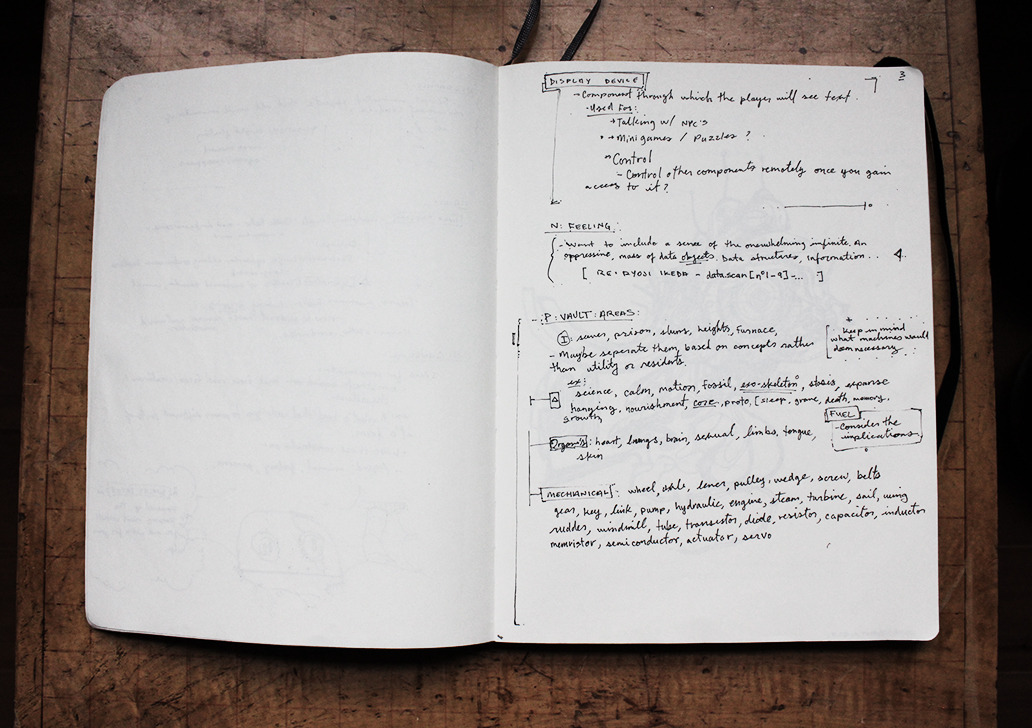 3
DISPLAY DEVICE
- Component through which the player will see text.
- Used For:
→ Talking w/ NPC's
→ Minigames / Puzzles ?
Control
- Control other components remotely once you gain
access to it?
N: FEELING
- Want to include a sense of the overwhelming infinite. An
oppressive, mass of data objects. Data structures, information . .
[ RE: RYOJI IKEDA - data.scan [nº1-9] -... ]
P: VAULT: AREAS:
I : sewer, prison, slums, heights, furnace,
- Maybe seperate them, based on concepts rather
than utility or residents.
* Keep in mind
what machines would
deem necessary
ex:
science, calm, motion, fossil, exo-skeleton, stasis, expanse
hanging, nourishment, core, proto, [sleep, grave, death, memory,
growth
FUEL
- Consider the
implications
Organs : heart, lungs, brain, sexual, limbs, tongue,
skin
MECHANICAL : wheel, axle, lever, pulley, wedge, screw, belts
gear, key, link, pump, hydraulic, engine, steam, turbine, sail, wing
rudder, windmill, tube, transistor, diode, resistor, capacitor, inductor
memristor, semiconductor, actuator, servo